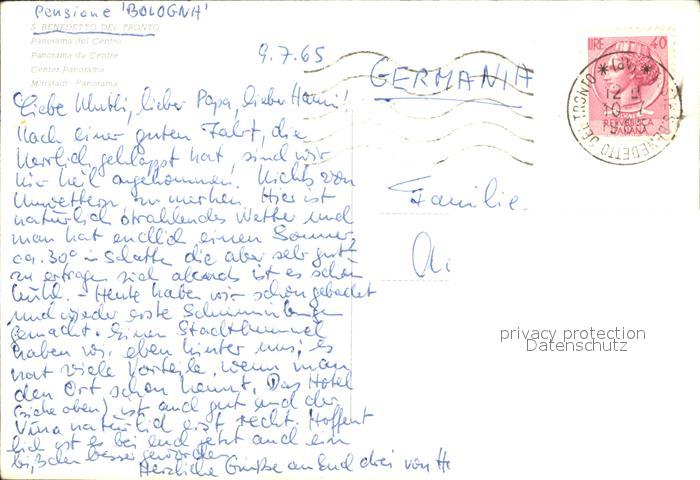 Pensione 'BOLOGNA'
S. BENEDETTO DEL TRONTO
Panorama del Centro
Panorama du Centre
Center Panorama
Mittstadt - Panorama
9.7.65
GERMANIA
LIRE 40
REPVBBLICA
ITALIANA
S. BENEDETTO DEL TRONTO
Liebe Mutti, lieber Papa, lieber Hanni!
Nach einer guten Fahrt, die
herrlich geklappt hat, sind wir
hier heil angekommen. Nichts von
Unwettern zu merken. Hier ist
natürlich strahlendes Wetter und
man hat endlich einen Sommer,
ca. 30° im Schatten die aber sehr gut
zu ertragen sind abends ist es schön
kühl. - Heute haben wir schon gebadet
und wieder erste Schwimmübungen
gemacht. Einen Stadtbummel
haben wir eben hinter uns; es
hat viele Vorteile, wenn man
den Ort schon kennt. Das Hotel
(siehe oben) ist auch gut und der
Vino natürlich erst recht. Hoffent
lich ist es bei Euch jetzt auch ein
bißchen besser geworden.
Herzliche Grüße an Euch drei von H
Familie
privacy protection
Datenschutz